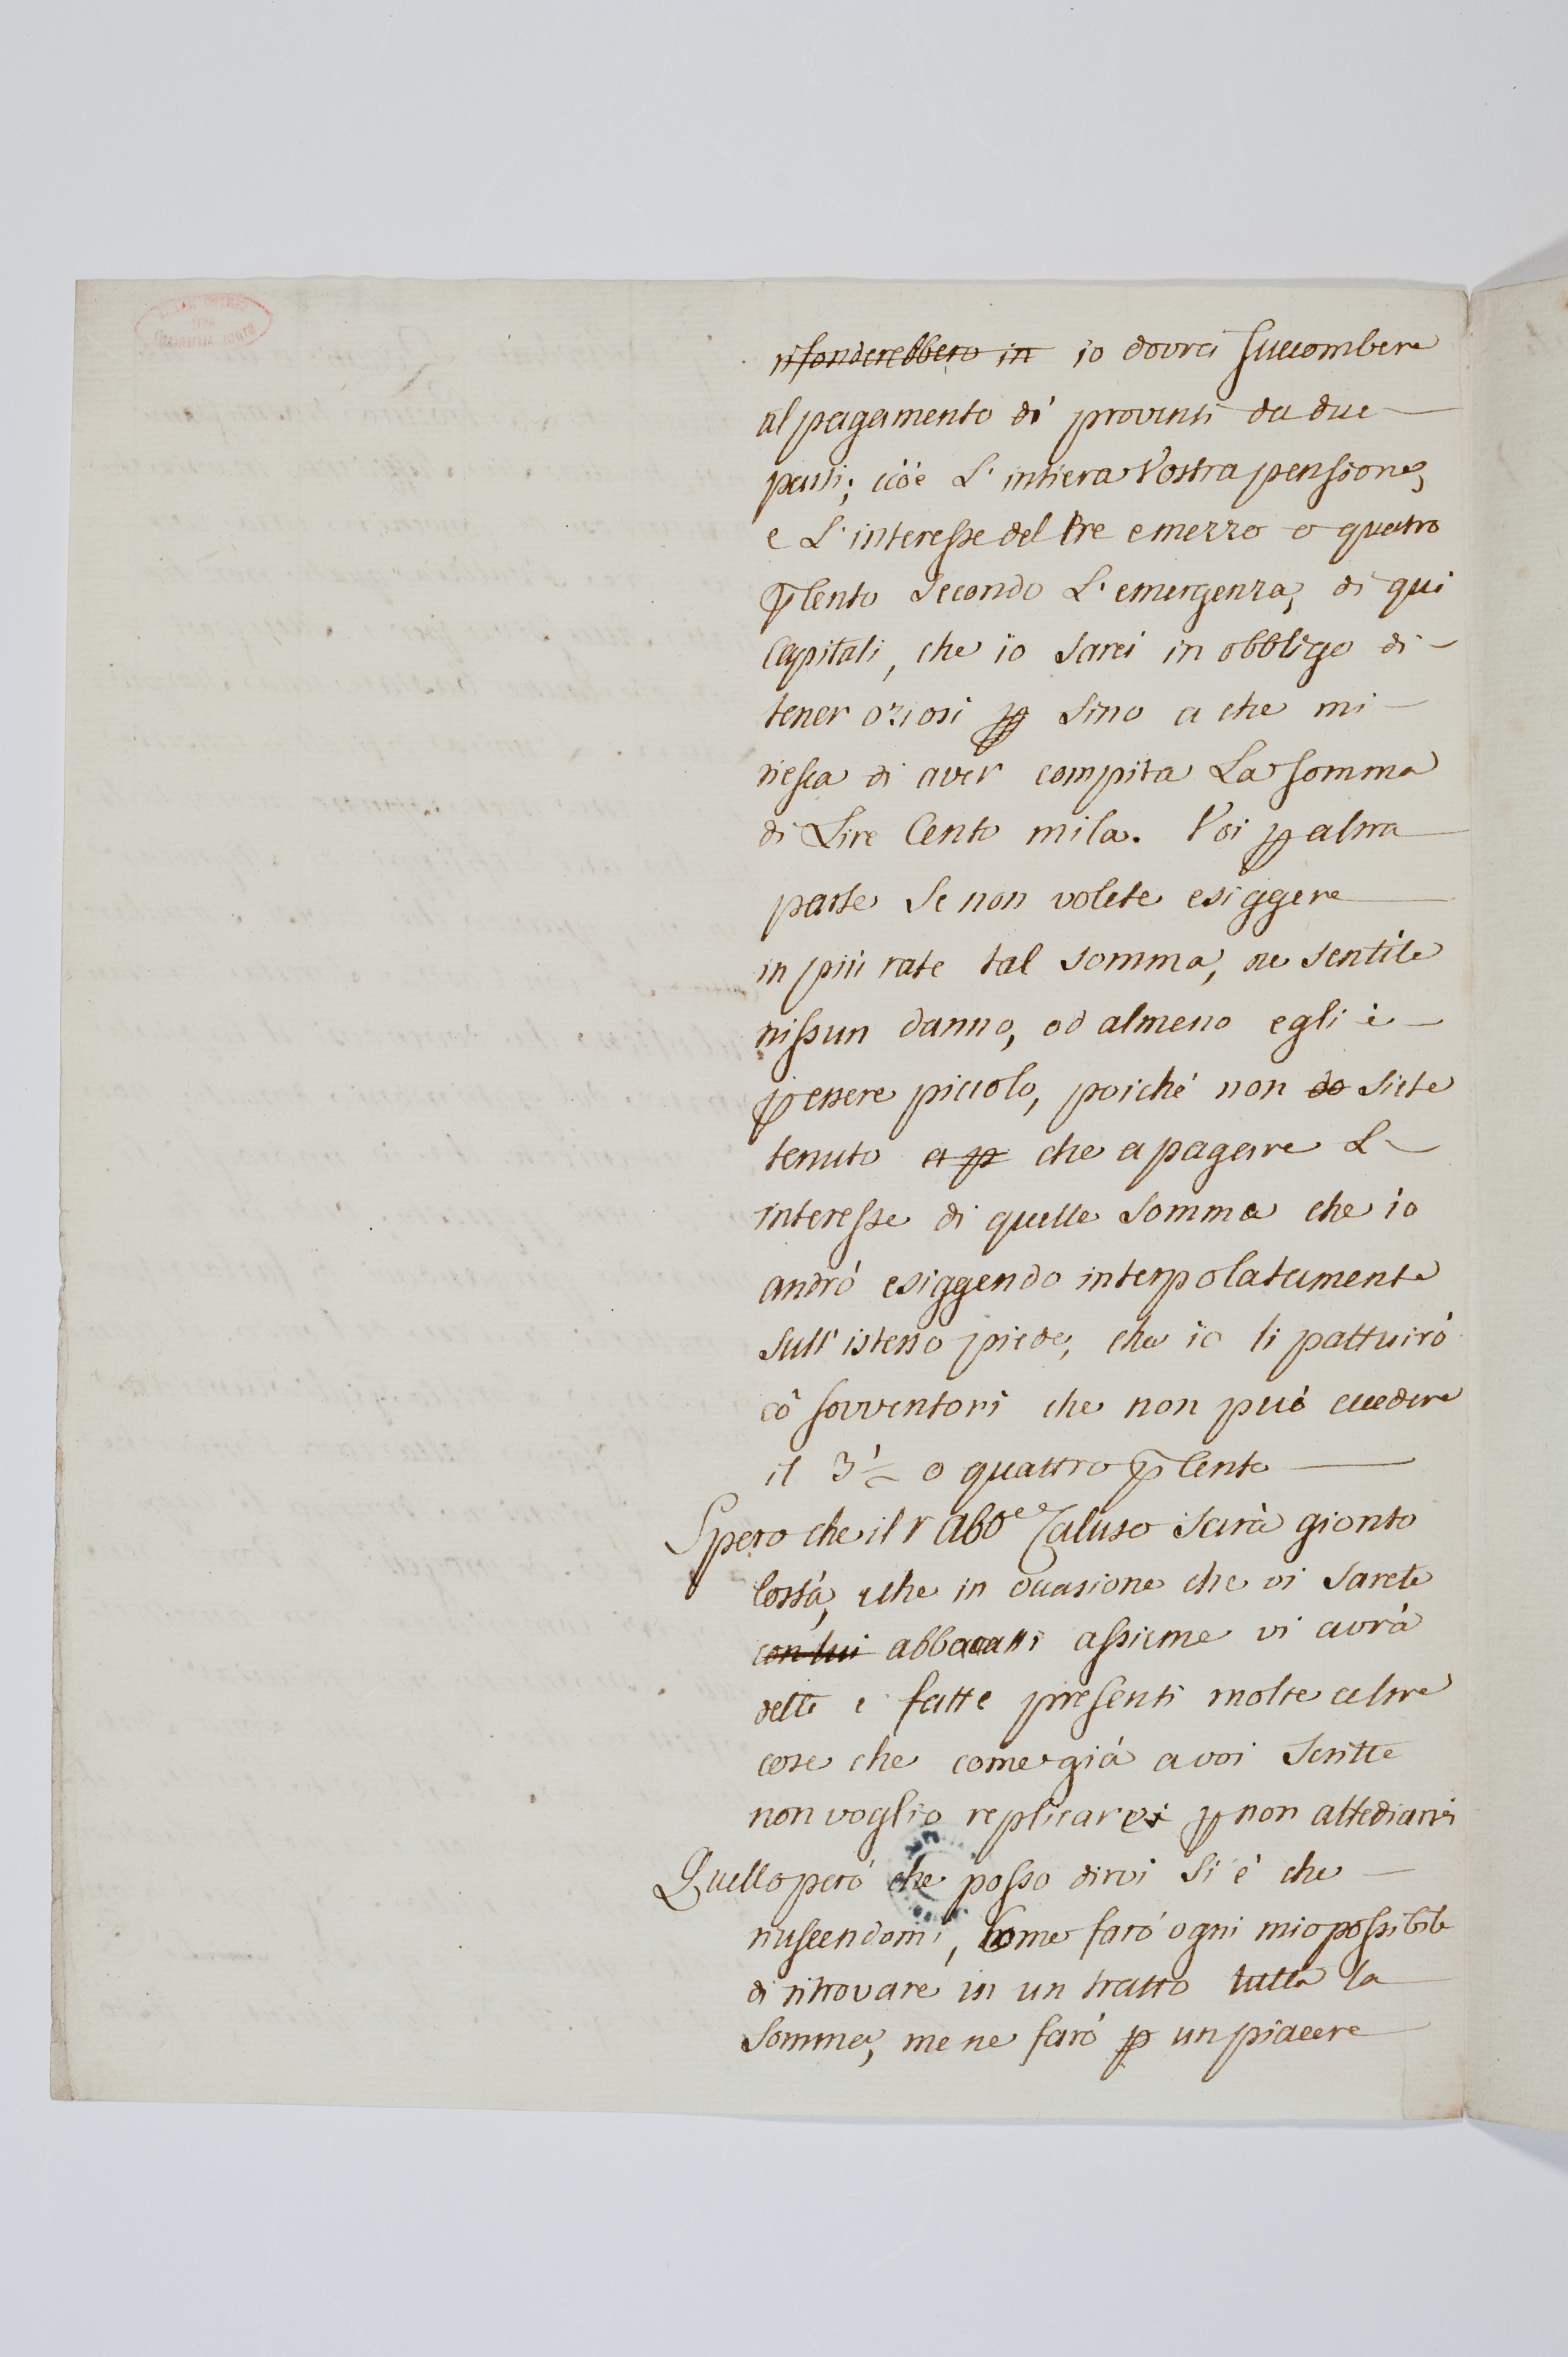 rifonderebbero in io dovrei succombere
al pagamento di proventi da due
parti; cioè L' intiera Vostra pensione,
e L' interesse del tre e mezzo o quatro
p Cento secondo L' emergenza, di qui
Capitali, che io sarei in obbligo di
tener oziosi p sino a che mi
riesca di aver compita La somma
di Lire Cento mila. Voi p altra
parte se non volete esiggere
in più rate tal somma, ne sentite
nissun danno, od almeno egli è
p essere piccolo, poiché non do siete
tenuto a p che a pagare L
interesse di quelle somma che io
andró esiggendo interpolatamente
sull' istesso piede, che io li pattuiró
có sovventori che non può eccedere
il 3 1/2 o quattro p Cento
Spero che il r Abb.e Caluso sarà gionto
Costà, e che in occasione che vi sarete
con lui abbocatti assieme vi avrà
dette e fatte presenti molte altre
cose che come già a voi scritte
non voglio replicarvi p non attediarvi
Quello peró che posso dirvi si è che
riuscendomi, come faró ogni mio possibile
di ritrovare in un tratto tutta la
somma, me ne faró p un piacere